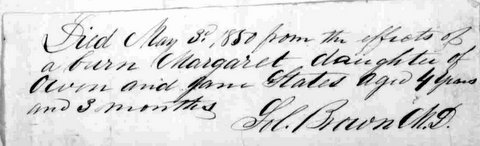 Died May 3d, 1850 from the effects of
a burn Margaret daughter of
Owen and Jane States aged 4 years
and 3 months
Brown M.D.